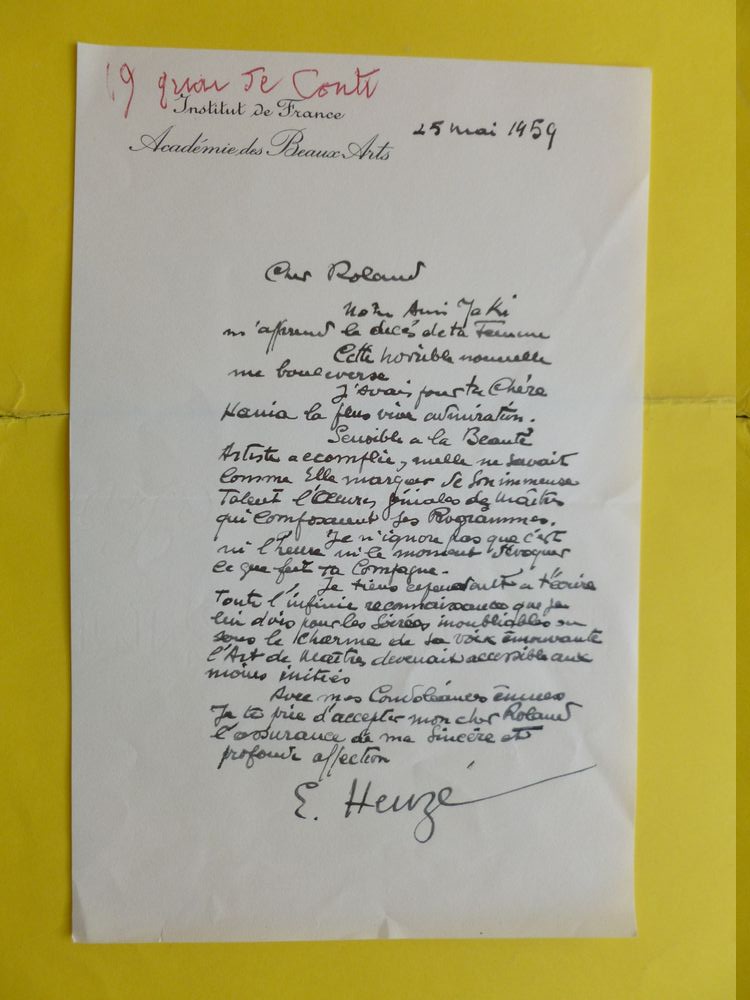 19 quai de Conti
Institut de France
Académie des Beaux Arts
25 mai 1959
Cher Roland
Notre Ami Jaki
m'apprend le décès de ta Femme
Cette horrible nouvelle
me bouleverse
J'avais pour ta Chère
Hania la plus vive admiration.
Sensible a la Beauté
Artiste accomplie, nulle ne savait
Comme Elle marquer de son immense
Talent l'Œuvres géniales des Maîtres
qui Composaient ses Programmes.
Je n'ignore pas que c'est
ni l'heure ni le moment d'évoquer
ce que fut ta Compagne.
Je tiens cependant a t'écrire
Toute l'infinie reconnaissance que je
lui dois pour les Soirées inoubliables ou
sous le Charme de sa voix émouvante
l'Art de Maîtres devenait accessible aux
moins initiés
Avec mes Condoléances émues
Je te prie d'accepter mon cher Roland
l'assurance de ma Sincère et
profonde affection
E. Heuzé